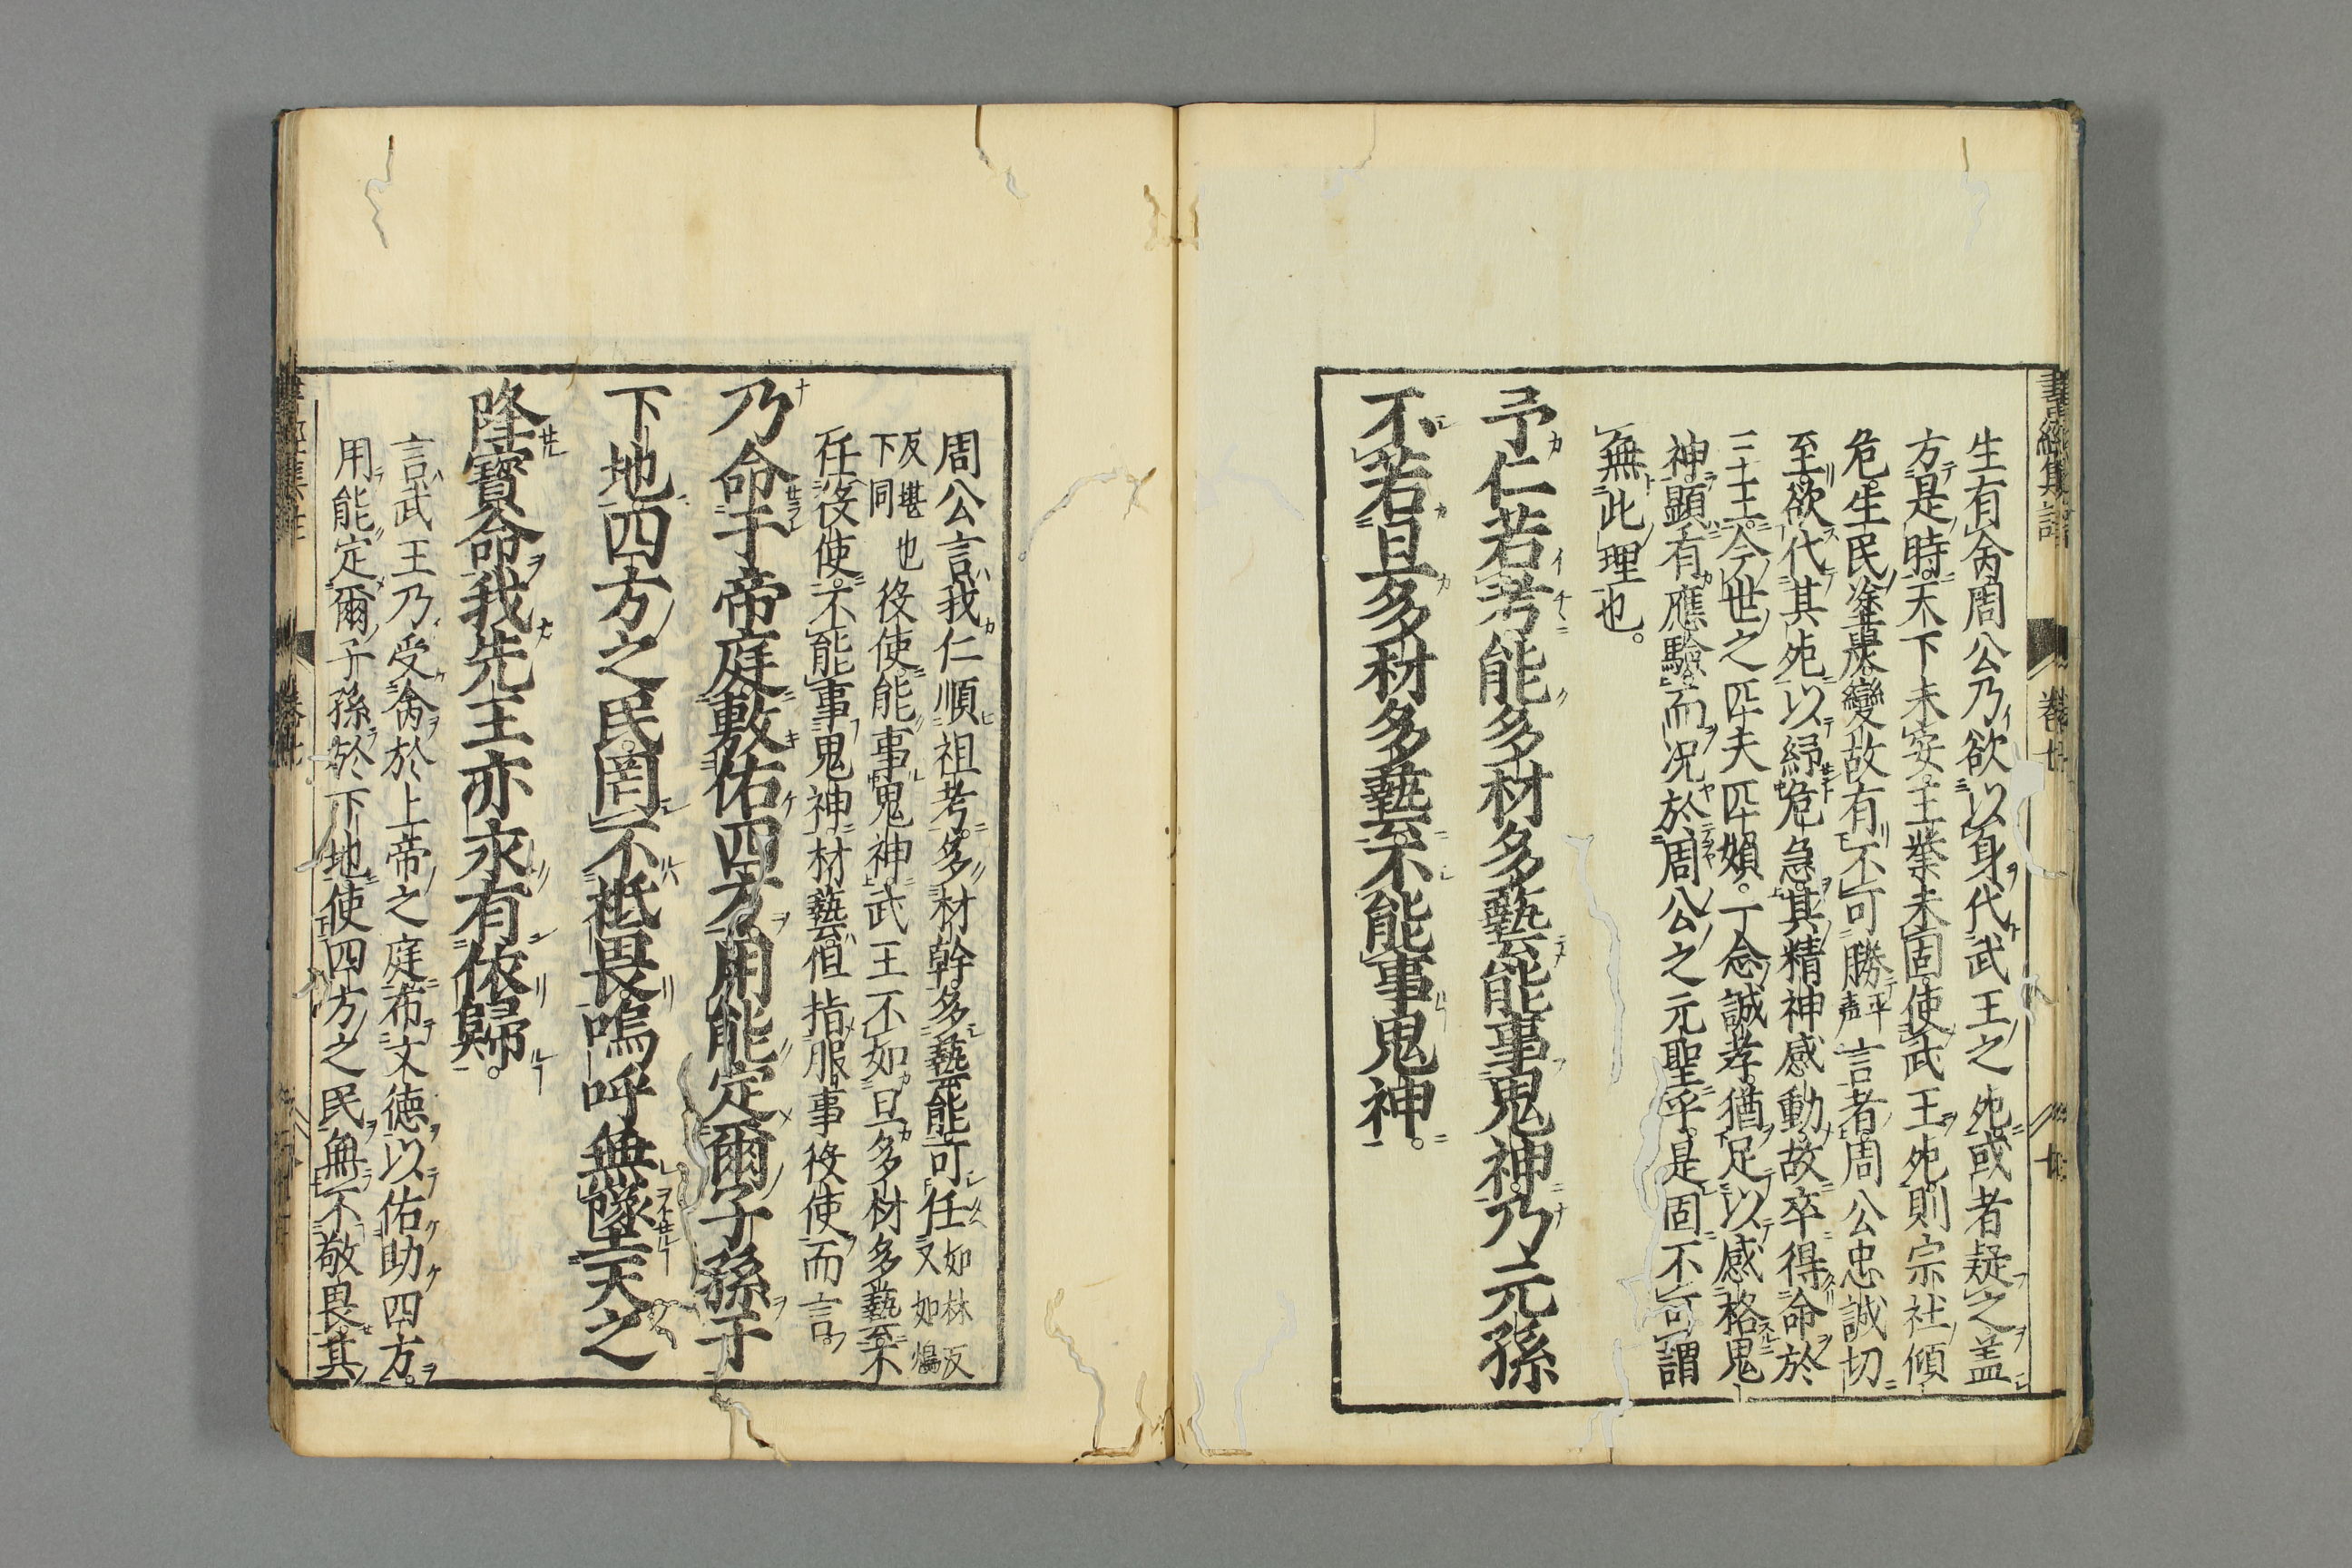 書經集註
卷七
生有命周公乃欲以身代武王之死或者疑之盖
方是時天下未安王業未固使武王死則宗社傾
危生民塗炭變故有不可勝平聲言者周公忠誠切
至欲代其死以紓危急其精神感動故卒得命於
三王今世之匹夫匹婦一念誠孝猶足以感格鬼
神顯有應驗而况於周公之元聖乎是固不可謂
無此理也。
予仁若考能多材多藝能事鬼神乃元孫
不若旦多材多藝不能事鬼神。
周公言我仁順祖考多材幹多藝能可任如林反又如鴆
反堪也下同役使能事鬼神武王不如旦多材多藝不
任役使不能事鬼神材藝但指服事役使而言
乃命于帝庭敷佑四方用能定爾子孫于
下地四方之民罔不祗畏嗚呼無墜天之
降寶命我先王亦永有依歸。
言武王乃受命於上帝之庭布文德以佑助四方。
用能定爾子孫於下地使四方之民無不敬畏其